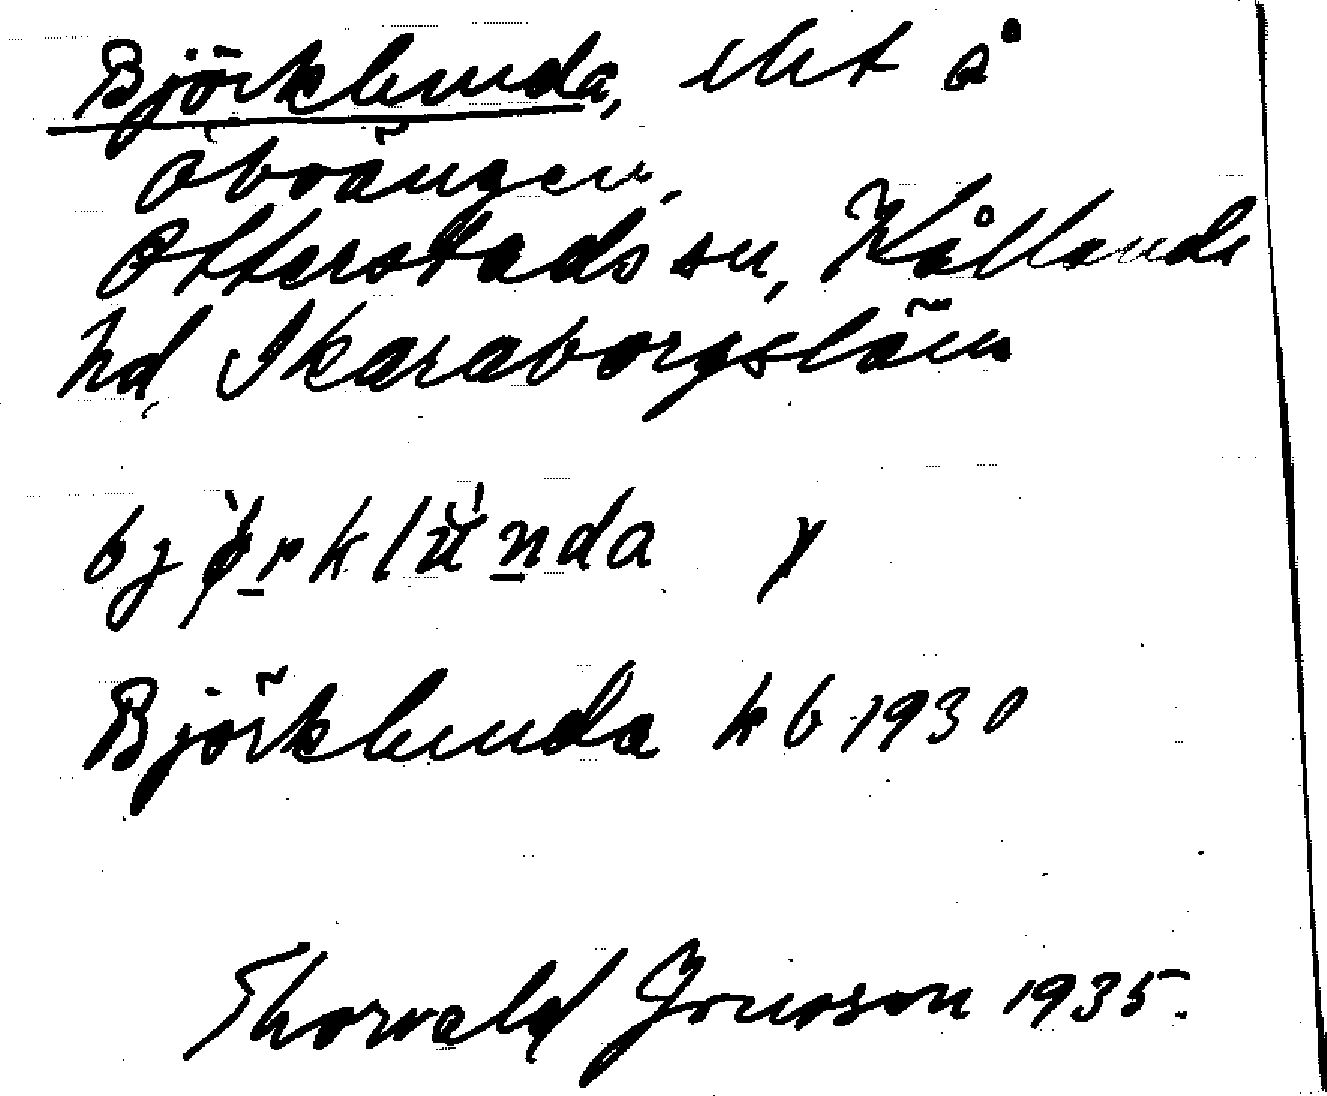 Björklunda, lht å
Åbrängen,
Otterstads sn, Kållands
hd, Skaraborgs län
Björklunda kb 1930
Thorwald Jonsson 1935.